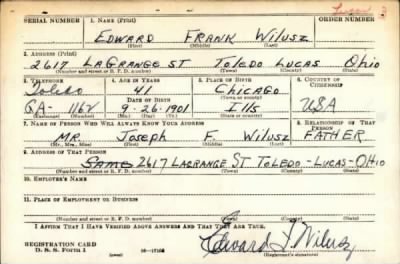 SERIAL NUMBER 1. NAME (Print)
EDWARD FRANK WILUSZ
(First) (Middle) (Last)
2. ADDRESS (Print)
2617 LAGRANGE ST TOLEDO LUCAS OHIO
(Number and street or R. F. D. number) (Town) (County) (State)
3. TELEPHONE 4. AGE IN YEARS 5. PLACE OF BIRTH 6. COUNTRY OF CITIZENSHIP
Toledo 41 CHICAGO
DATE OF BIRTH (Town or county)
GA- 1162 9-26-1901 Ills USA
(Exchange) (Number) (Mo.) (Day) (Yr.) (State or country)
7. NAME OF PERSON WHO WILL ALWAYS KNOW YOUR ADDRESS 8. RELATIONSHIP OF THAT PERSON
MR. JOSEPH F. WILUSZ FATHER
(Mr., Mrs., Miss) (First) (Middle) (Last)
9. ADDRESS OF THAT PERSON
SAME 2617 LAGRANGE ST TOLEDO-LUCAS-OHIO
(Number and street or R. F. D. number) (Town) (County) (State)
10. EMPLOYER'S NAME
11. PLACE OF EMPLOYMENT OR BUSINESS
(Number and street or R. F. D. number) (Town) (County) (State)
I AFFIRM THAT I HAVE VERIFIED ABOVE ANSWERS AND THAT THEY ARE TRUE.
REGISTRATION CARD
D. S. S. Form 1 Edward F. Wilusz
(Registrant's signature)